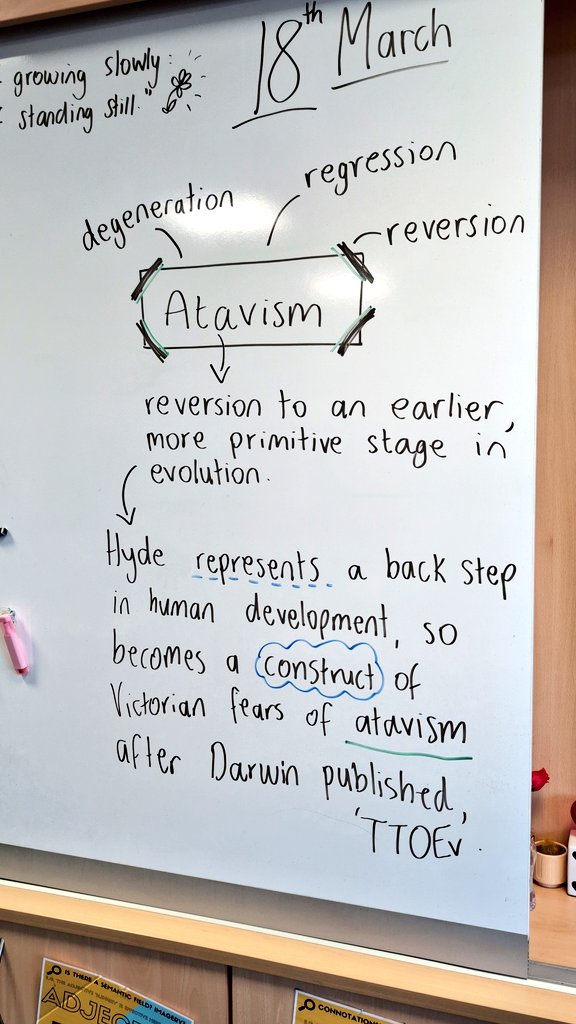 growing slowly:
standing still."
18th March
degeneration
regression
reversion
Atavism
reversion to an earlier,
more primitive stage in
evolution.
Hyde represents a back step
in human development, so
becomes a construct of
Victorian fears of atavism
after Darwin published,
'TTOEv'.
IS THERE A SEMANTIC FIELD? IMAGERY?
CONNOTATION